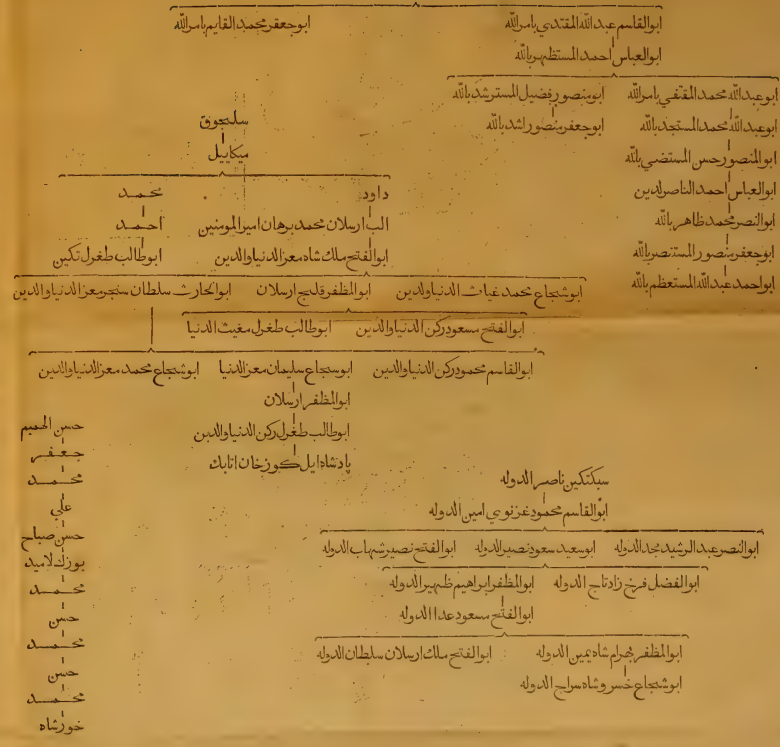 ابوالقاسم عبدالله المقتدي بامرالله
ابوجعفر محمد القايم بامرالله
ابوالعباس احمد المستظهر بالله
ابوعبدالله محمد المقتفي بامرالله
ابومنصور فضيل المسترشد بالله
ابوعبدالله محمد المستجد بالله
ابوجعفر منصور راشد بالله
ابوالمنصور حسن المستضي بالله
ابوالعباس احمد الناصر لدين
ابوالنصر محمد ظاهر بالله
ابوجعفر منصور المستنصر بالله
ابواحمد عبدالله المستعظم بالله
سلجوق
ميكاييل
داود
محمد
الب ارسلان محمد برهان امير المومنين
احمد
ابوالفتح ملك شاه معز الدنيا والدين
ابوطالب طغرل تكين
ابوشجاع محمد غياث الدنيا ولدين
ابوالمظفر قليج ارسلان
ابوالحارث سلطان سنجر معز الدنيا والدين
ابوالفتح مسعود ركن الدنيا والدين
ابوطالب طغرل مغيث الدنيا
ابوالقاسم محمود ركن الدنيا والدين
ابوسجاع سليمان معز الدنيا
ابوشجاع محمد معز الدنيا والدين
ابوالمظفر ارسلان
ابوطالب طغرل ركن الدنيا والدين
پادشاه ايل كوز خان اتابك
سبكتكين ناصر الدوله
ابوالقاسم محمود غزنوي امين الدوله
ابوالنصر عبد الرشيد مجد الدوله
ابوسعيد سعود نصير الدوله
ابوالفتح نصير شهاب الدوله
ابوالفضل فرخ زاد تاج الدوله
ابوالمظفر ابراهيم ظهير الدوله
ابوالفتح مسعود عدا الدوله
ابوالمظفر بهرام شاه يمين الدوله
ابوالفتح ملك ارسلان سلطان الدوله
ابوشجاع خسرو شاه سراج الدوله
حسن الحميم
جعفر
محمد
علي
حسن صباح
بوزك لاميد
محمد
حسن
محمد
حسن
محمد
خورشاه